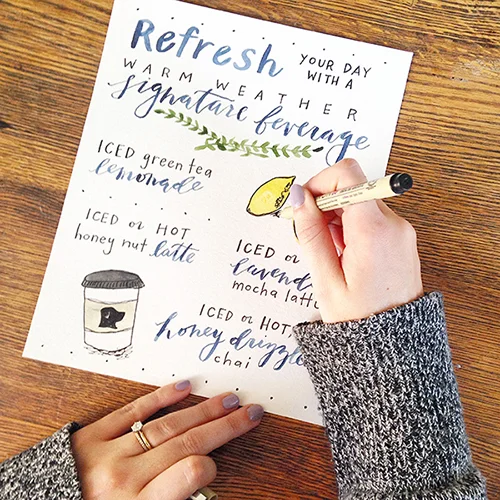 Refresh YOUR DAY
WITH A
WARM WEATHER
signature beverage
ICED green tea
lemonade
ICED or HOT
honey nut latte
ICED or
mocha latt
ICED or HOT
honey drizzle
chai